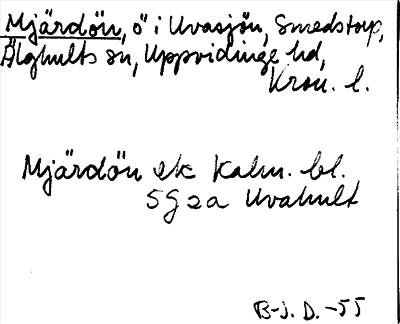 Mjärdön, ö i Uvasjön, Smedstorp,
Älghults sn, Uppvidinge hd,
Kron. l.
Mjärdön ek Kalm. bl.
5G2a Uvahult
B-J. D. -55